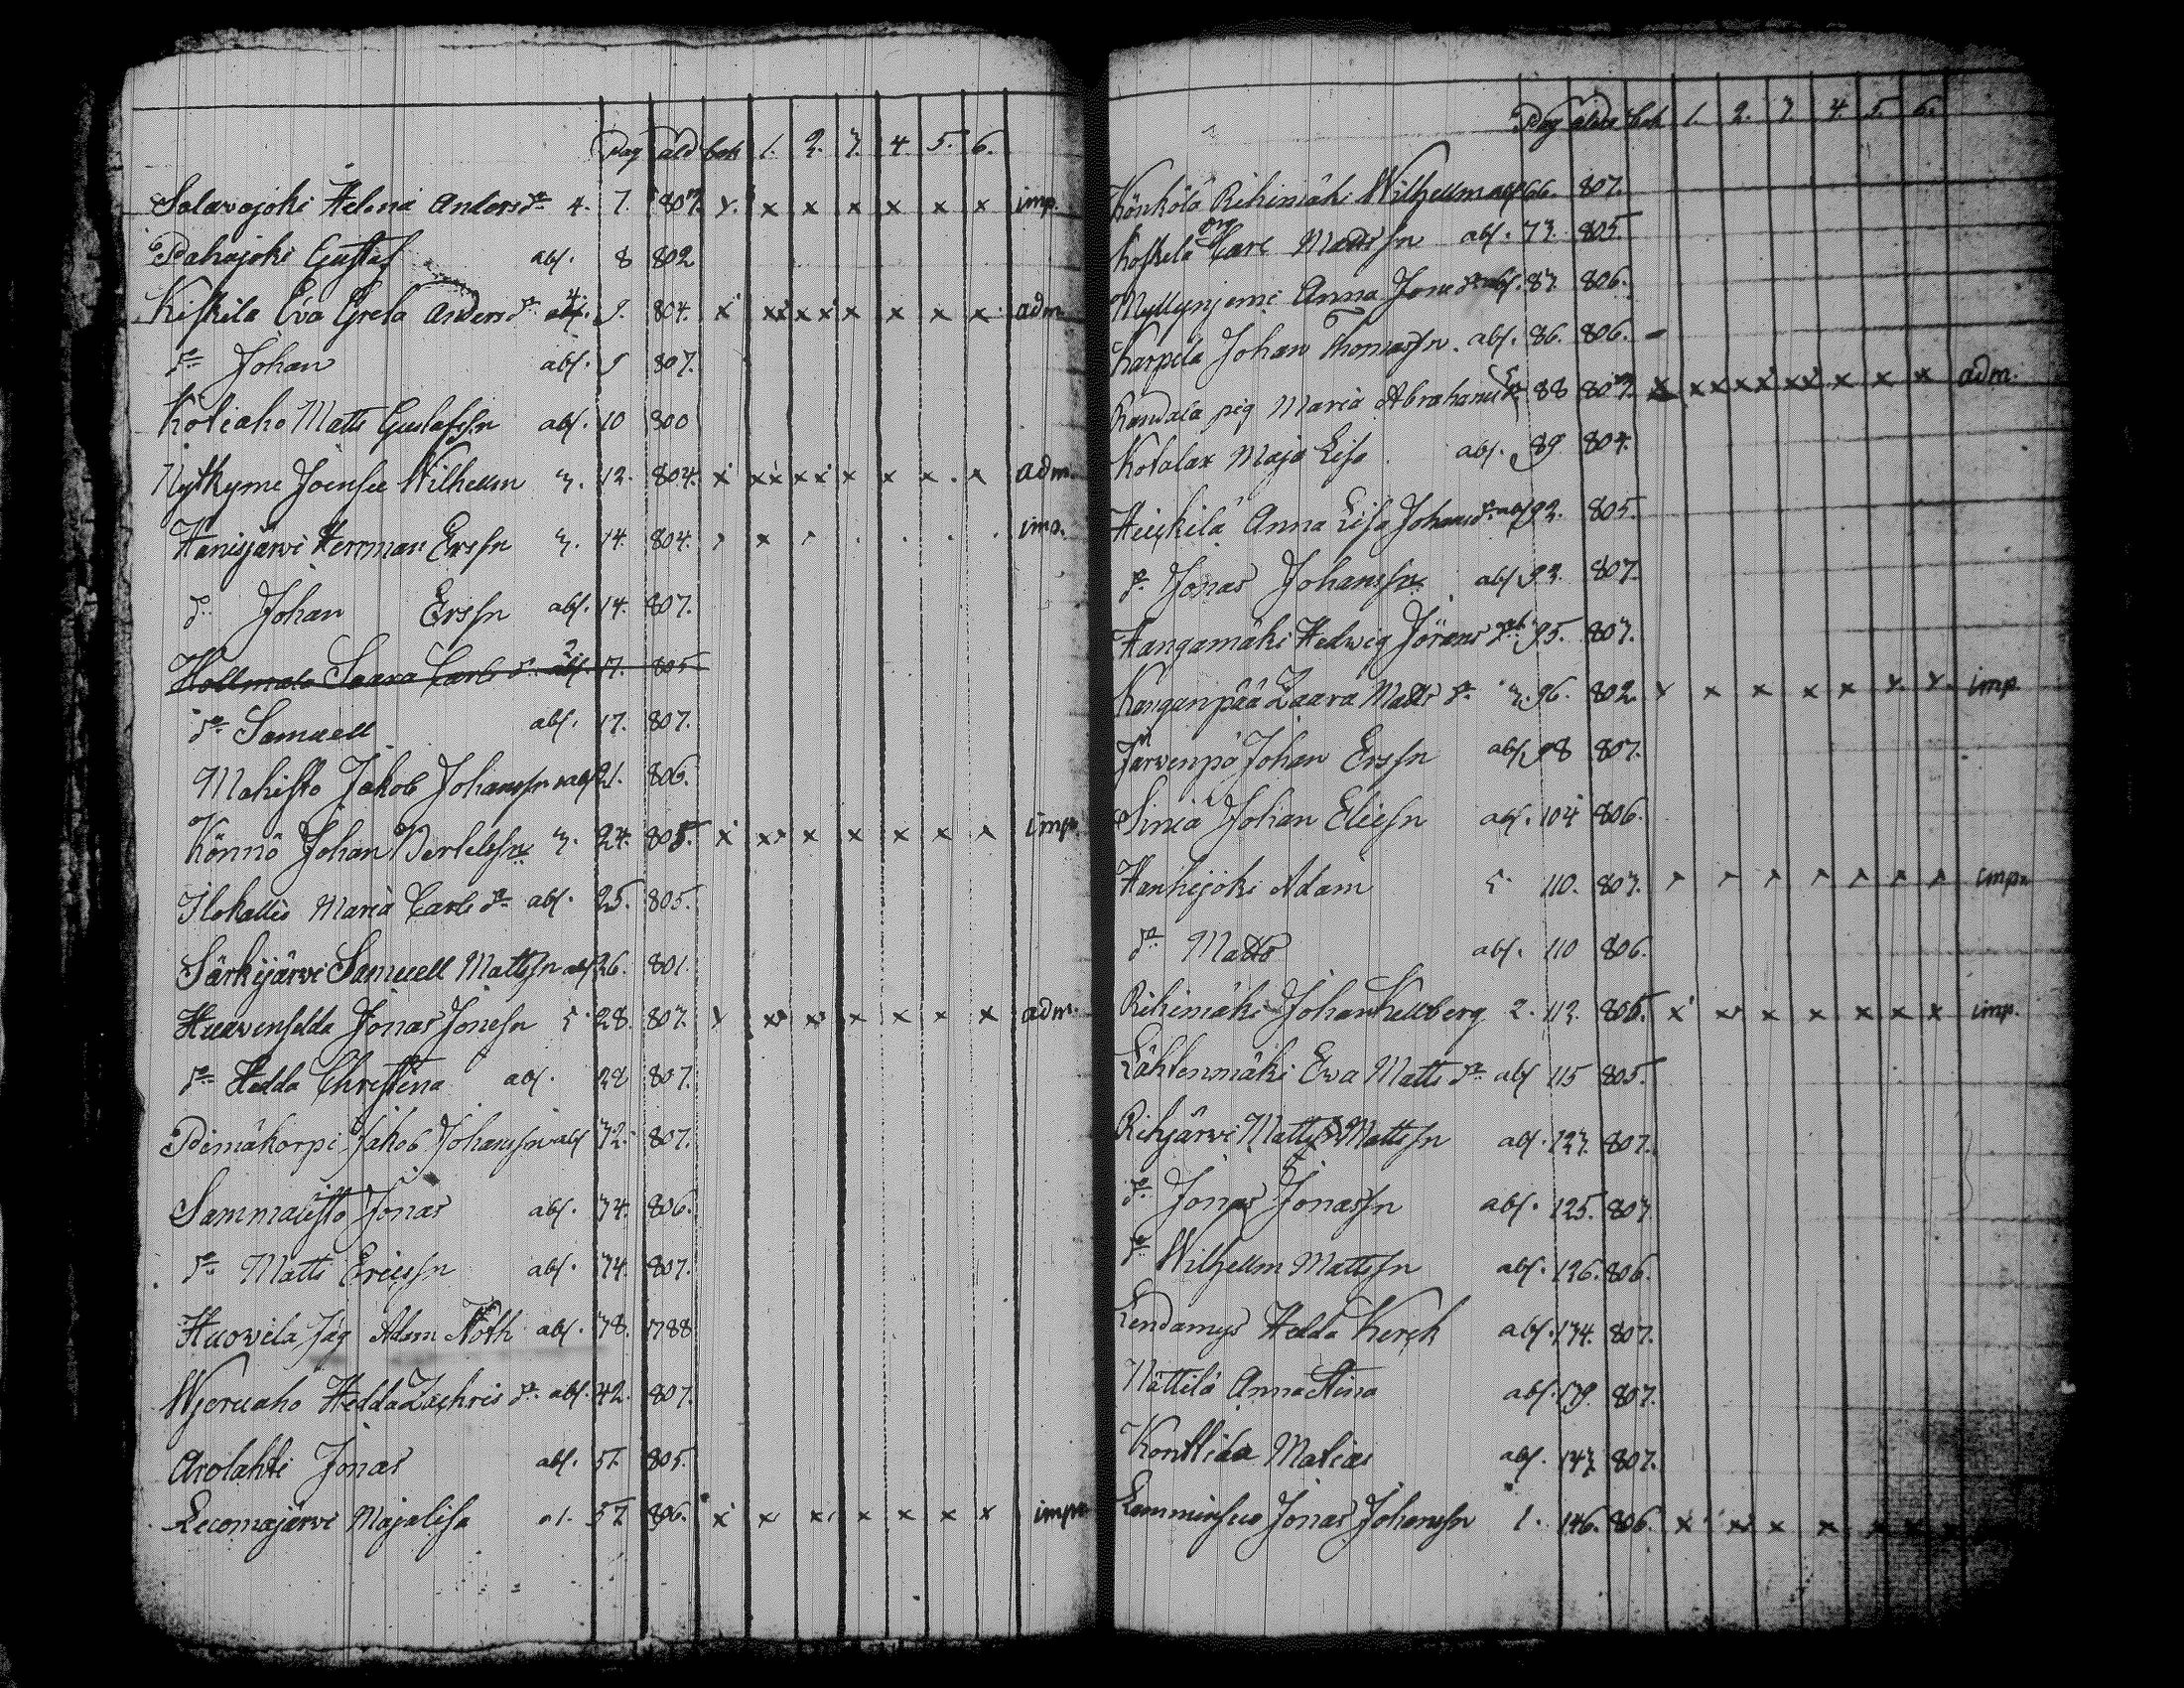 Pag ald bok 1. 2. 3. 4. 5. 6.
Salavajoki Helena Anders dr 4. 7. 807. x. x x x x x x imp.
Pahajoki Gustaf abs. 8 802
Kiskila Eva Greta Anders dr 4. 9. 804. x xx xx x x x x adm.
do Johan abs. 9 807.
Koliaho Matts Gustafssn abs. 10 800
Nytkyme Joensuu Wilhelm 3. 12. 804. x xx xx x x x x adm.
Hanisjärvi Herrman Erssn 3. 14. 804. imp.
do Johan Erssn abs. 14. 807.
Hollmalo Saara Carls dr 2 abs. 17. 805
do Samuell abs. 17. 807.
Mahisto Jakob Johanssn abs 21. 806.
Könnö Johan Bertelssn 3. 24. 805. x xx x x x x x imp.
Ilokallio Maria Carls dr abs. 25. 805.
Särkijärvi Samuell Mattssn abs 26. 801.
Jonas Jonssn 5 28. 807. x xx xx x x x x adm.
do Hedda Christina abs. 28 807.
Pimäkorpi Jakob Johanssn abs 32. 807.
Sammalisto Jonas abs. 34. 806.
do Matts Ericssn abs. 34. 807.
Huovila Jäg Adam Noth abs. 38. 1788
Hedda Zachris dr abs. 42. 807.
Arolahti Jonas abs. 51. 805.
Majalisa 57 806. x x x x x x x imp.
Pag alder bok 1. 2. 3. 4. 5. 6.
Könkölä Rihimäki Wilhellm abs 66. 807.
Koskela Carl Mattssn abs. 73. 805.
Myllyniemi Anna Jons dr abs. 83. 806.
Karpela Johan Thomassn. abs. 86. 806.
Randala pig Maria Abrahams dr 88 807. x xx xx xx x x x adm.
Kotalax Maja Lisa abs. 89 804.
Heickilä Anna Lisa Johans dr abs 92. 805.
do Jonas Johanssn abs 93. 807.
Hangamäki Hedwig Jörans dr abs 95. 807.
Kanganpää Zaara Matts dr 3. 96. 802. x x x x x x. x. imp.
Järvenpä Johan Erssn abs 98 807.
Sinia Johan Eliessn abs. 104 806.
Hanhijoki Adam 5. 110. 807. imp.
do Matts abs. 110 806.
Rihimäki Johan Kullberg 2. 113. 805. x xx x x x x x imp.
Lähtenmäki Ewa Matts dr abs 115 805.
Rihijärvi Matts Mattssn abs. 123. 807.
do Jonas Jonassn abs. 125. 807
do Wilhellm Mattssn abs. 126. 806.
Hedda Kerck abs. 134. 807.
Nättilä Anna Stina abs. 139. 807.
Konttila Matias abs. 143 807.
Jonas Johanssn 1. 146. 806. x xx x x x x x